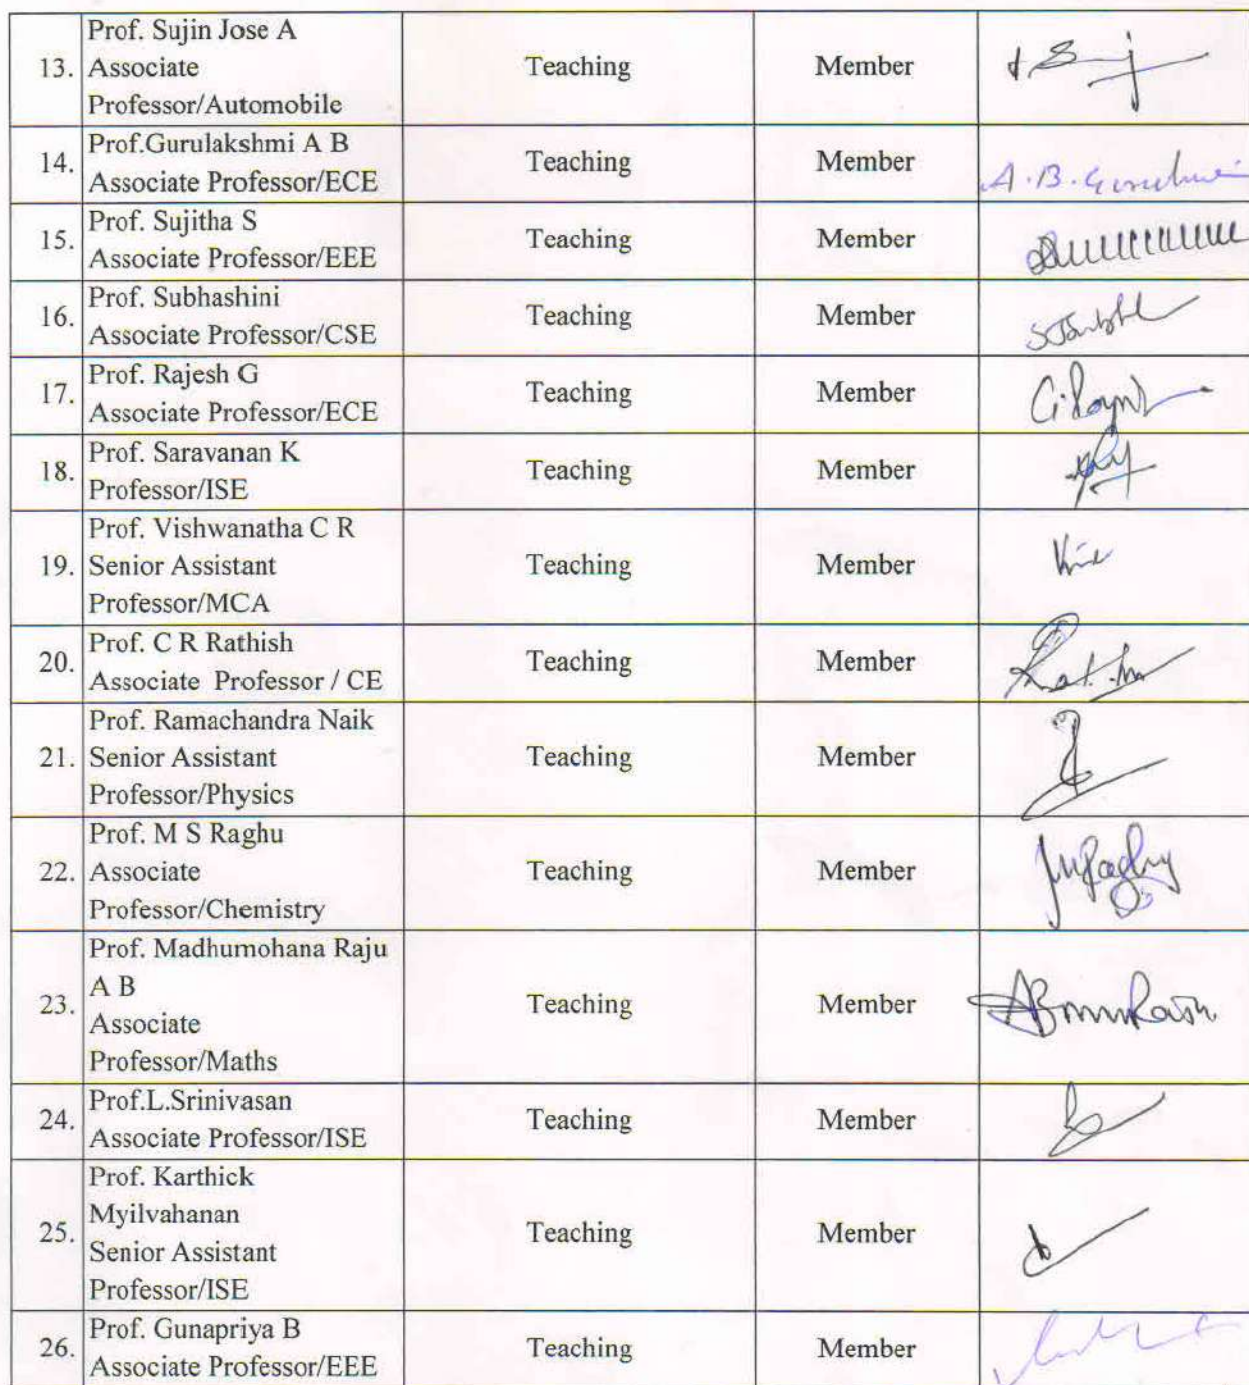 13. Prof. Sujin Jose A
Associate
Professor/Automobile
Teaching
Member
14. Prof.Gurulakshmi A B
Associate Professor/ECE
Teaching
Member
A.B.
15. Prof. Sujitha S
Associate Professor/EEE
Teaching
Member
16. Prof. Subhashini
Associate Professor/CSE
Teaching
Member
17. Prof. Rajesh G
Associate Professor/ECE
Teaching
Member
18. Prof. Saravanan K
Professor/ISE
Teaching
Member
19. Prof. Vishwanatha C R
Senior Assistant
Professor/MCA
Teaching
Member
20. Prof. C R Rathish
Associate Professor / CE
Teaching
Member
21. Prof. Ramachandra Naik
Senior Assistant
Professor/Physics
Teaching
Member
22. Prof. M S Raghu
Associate
Professor/Chemistry
Teaching
Member
23. Prof. Madhumohana Raju
A B
Associate
Professor/Maths
Teaching
Member
24. Prof.L.Srinivasan
Associate Professor/ISE
Teaching
Member
25. Prof. Karthick
Myilvahanan
Senior Assistant
Professor/ISE
Teaching
Member
26. Prof. Gunapriya B
Associate Professor/EEE
Teaching
Member